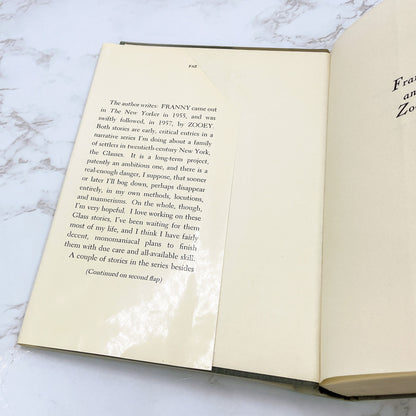 F&Z
The author writes: FRANNY came out
in The New Yorker in 1955, and was
swiftly followed, in 1957, by ZOOEY.
Both stories are early, critical entries in a
narrative series I'm doing about a family
of settlers in twentieth-century New York,
the Glasses. It is a long-term project,
patently an ambitious one, and there is a
real-enough danger, I suppose, that sooner
or later I'll bog down, perhaps disappear
entirely, in my own methods, locutions,
and mannerisms. On the whole, though,
I'm very hopeful. I love working on these
Glass stories, I've been waiting for them
most of my life, and I think I have fairly
decent, monomaniacal plans to finish
them with due care and all-available skill.
A couple of stories in the series besides
(Continued on second flap)
Fran
an
Zo